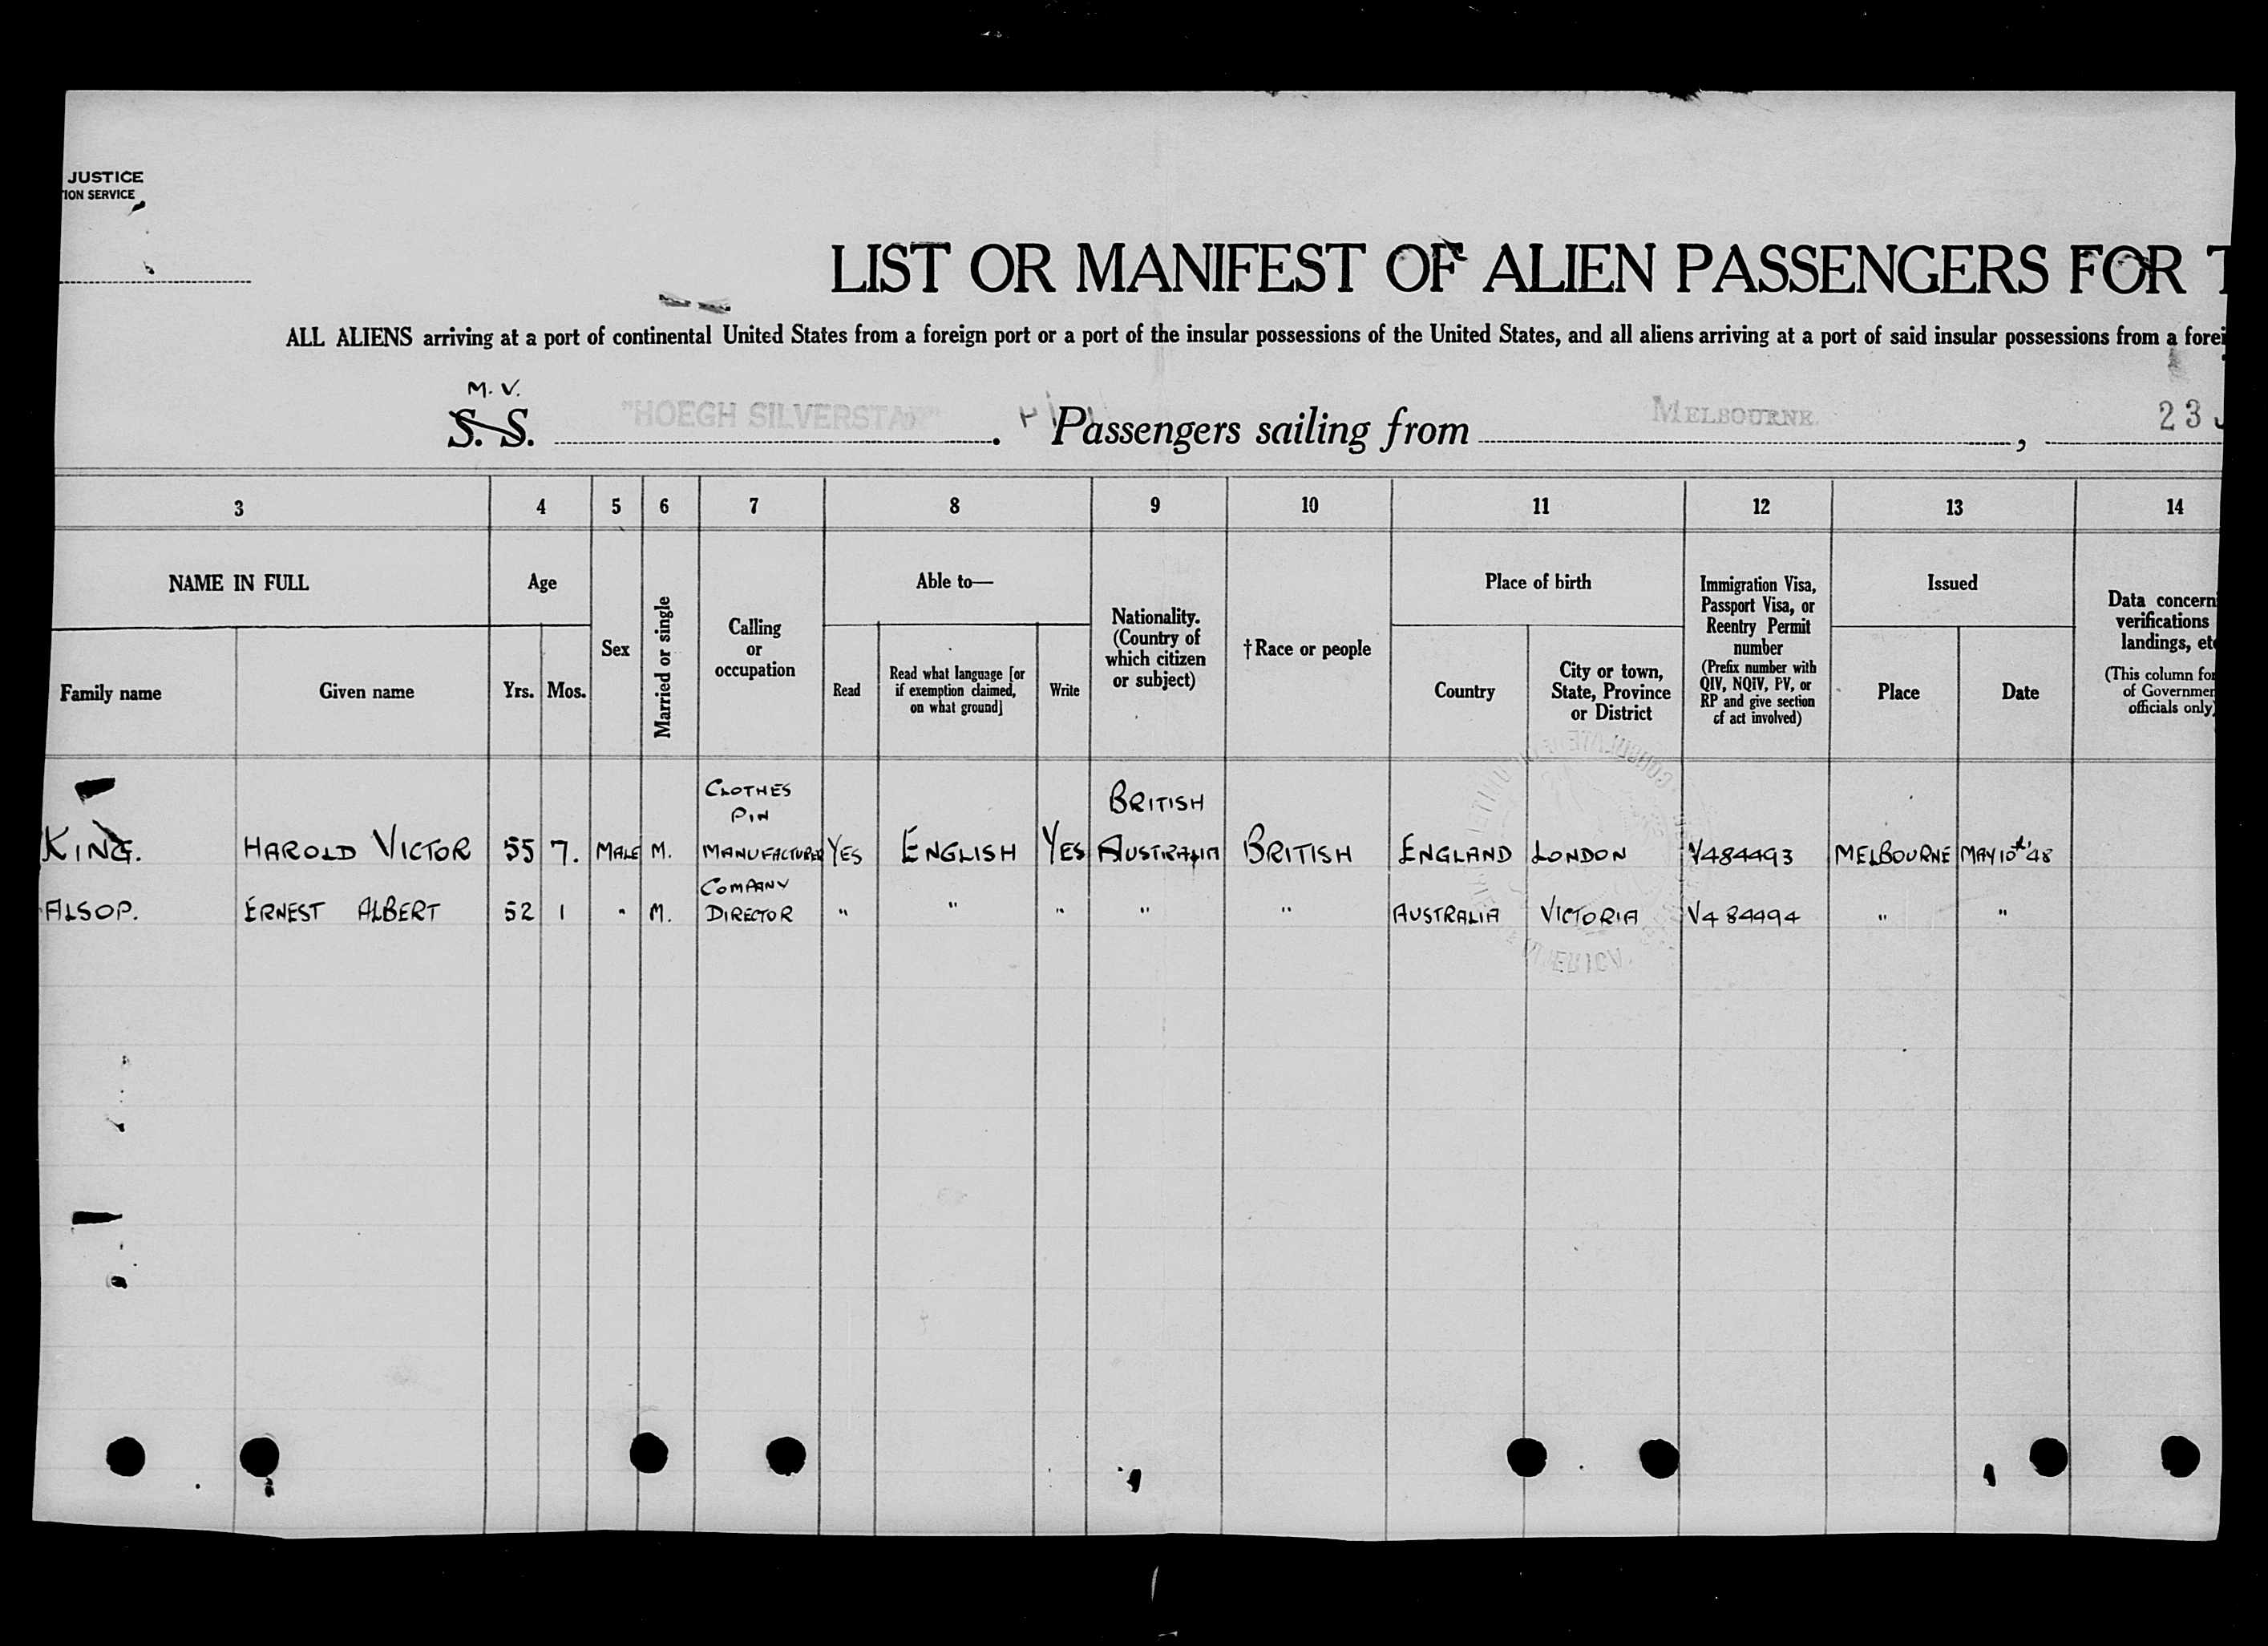 JUSTICE
ION SERVICE
LIST OR MANIFEST OF ALIEN PASSENGERS FOR T
ALL ALIENS arriving at a port of continental United States from a foreign port or a port of the insular possessions of the United States, and all aliens arriving at a port of said insular possessions from a forei
M. V.
S. S. "HOEGH SILVERSTAR". Passengers sailing from MELBOURNE, 23
3 4 5 6 7 8 9 10 11 12 13 14
NAME IN FULL
Family name Given name
Age
Yrs. Mos.
Sex
Married or single
Calling
or
occupation
Able to—
Read
Read what language [or
if exemption claimed,
on what ground]
Write
Nationality.
(Country of
which citizen
or subject)
†Race or people
Place of birth
Country
City or town,
State, Province
or District
Immigration Visa,
Passport Visa, or
Reentry Permit
number
(Prefix number with
QIV, NQIV, PV, or
RP and give section
of act involved)
Issued
Place Date
Data concern
verifications
landings, etc
(This column for
of Governmen
officials only)
CLOTHES
PIN
BRITISH
KING. HAROLD VICTOR 55 7. MALE M. MANUFACTURER YES ENGLISH YES AUSTRALIA BRITISH ENGLAND LONDON V484493 MELBOURNE MAY 10th '48
COMPANY
ALSOP. ERNEST ALBERT 52 1 " M. DIRECTOR " " " " " AUSTRALIA VICTORIA V484494 " "